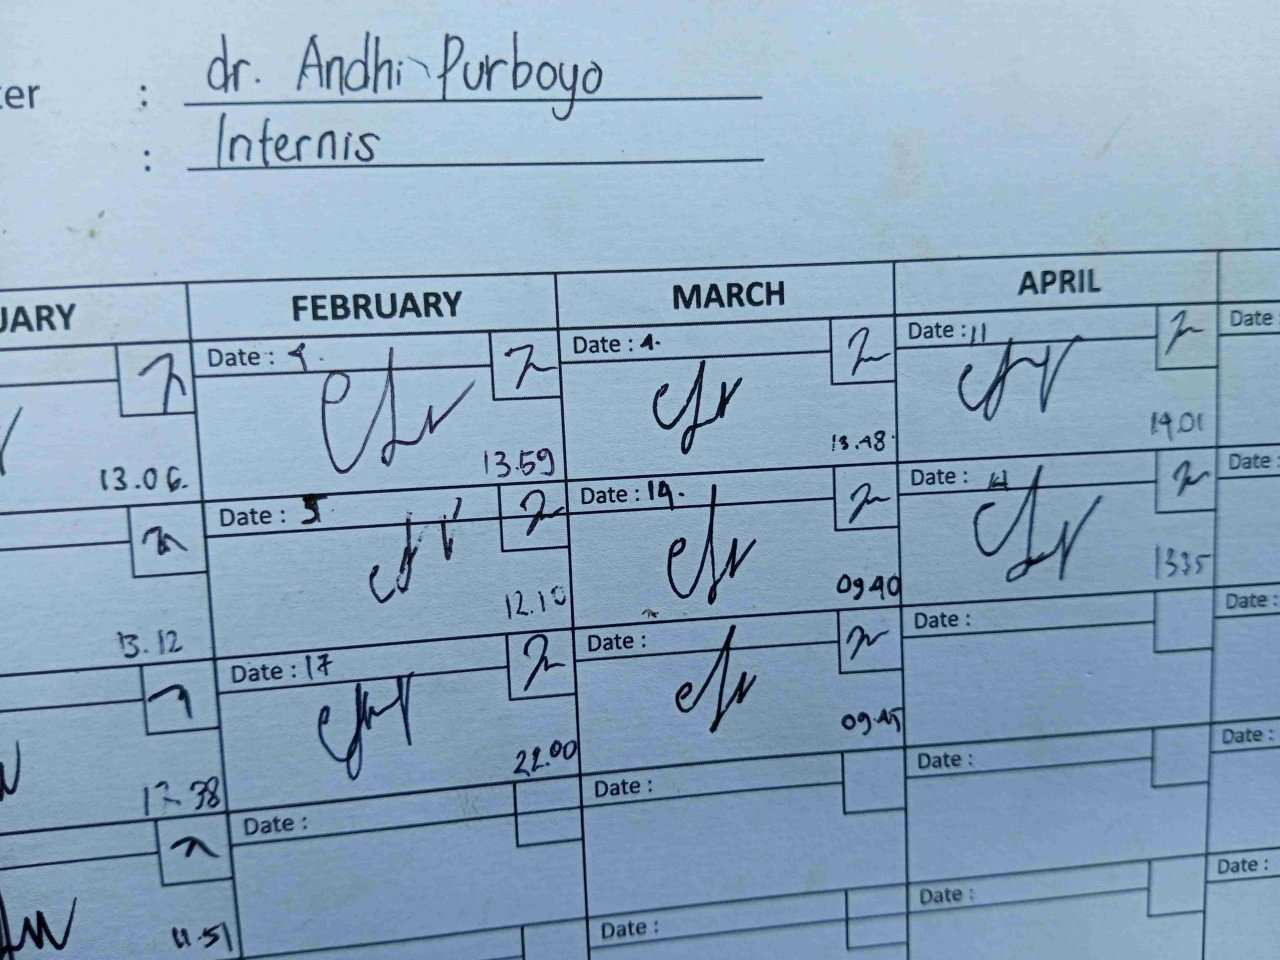 ter : dr. Andhi Purboyo
: Internis
UARY FEBRUARY MARCH APRIL
Date : 4. Date : 4. Date : 11 Date
13.06. 13.59 13.48 14.01
Date : 5 Date : 19. Date : Date :
13.12 12.10 09.40 1335
Date : 17 Date : Date : Date :
17.38 22.00 09.45
Date : Date : Date : Date :
11.51
Date : Date : Date :